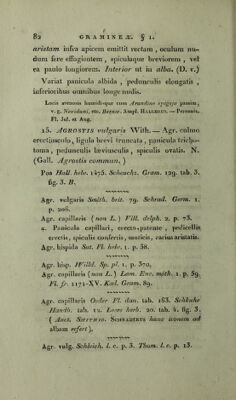 82 GRAMINEÆ. § I.
aristam infra apicem emittit rectam , oculum nu-
dum fere effugientem , spiculaque breviorem , vel
ea paulo longiorem. Interior ut in alba. (D. v.)
Variat panicula albida , pedunculis elongatis ,
inferioribus omnibus longe nudis.
Locis arenosis humidisque cum Arundine epigeja passim,
v. g. Novidani, etc. Bernae. Ampl. HALLERUS. — Perennis.
Fl. Jul. et Aug.
15. AGROSTIS vulgaris With. — Agr. culmo
erectiusculo, ligula brevi truncata , panicula tricho-
toma , pedunculis laeviusculis , spiculis ovatis. N.
(Gall. Agrostis commune. )
Poa Hall. helv. 1475. Scheuchz. Gram. 129. tab. 3.
fig. 3. B.
Agr. vulgaris Smith. brit. 79. Schrad. Germ. 1.
p. 206.
Agr. capillaris ( non L. ) Vill. delph. 2. p. 73.
α. Panicula capillari, erecto-patente , pedicellis
erectis, spiculis confertis, muticis, rarius aristatis.
Agr. hispida Sut. Fl. helv. 1. p. 58.
Agr. hisp. Willd. Sp. pl. 1. p. 370,
Agr. capillaris (non L.) Lam. Enc. méth. 1. p. 59.
Fl. fr. 1171-XV. Kœl. Gram. 89.
Agr. capillaris Oeder Fl. dan. tab. 163. Schkuhr
Handb. tab. 12. Leers herb. 20. tab. 4. fig. 3.
( Auct. SMITHIO. SCHRADERUS hanc iconem ad
albam refert ).
Agr. vulg. Schleich. l. c. p. 3. Thom. l. c. p. 13.